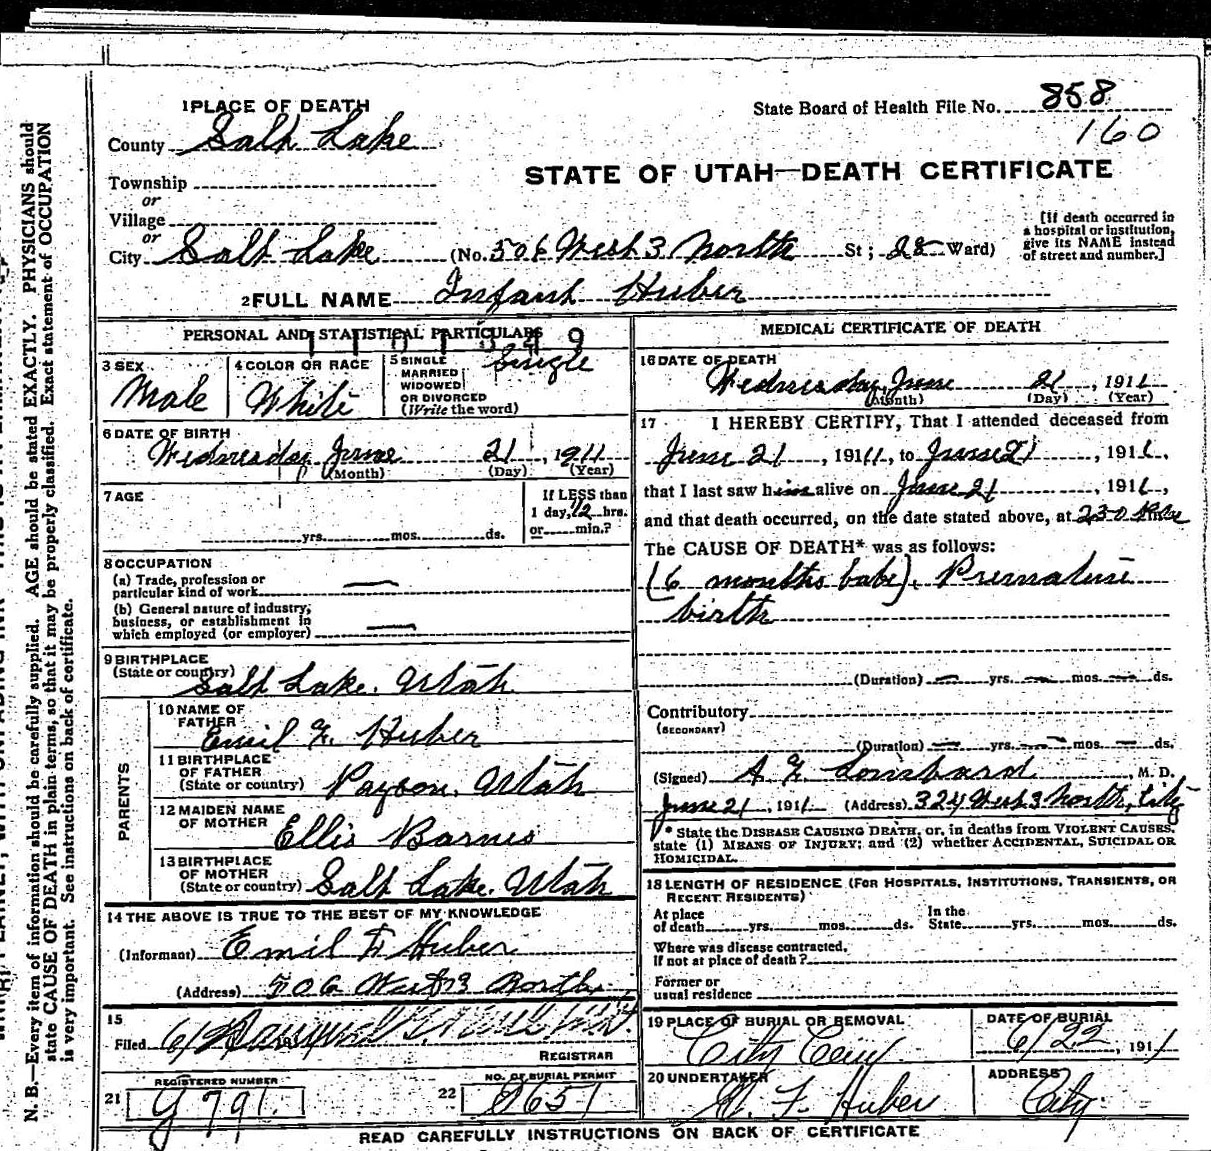 1 PLACE OF DEATH
State Board of Health File No. 858
160
County Salt Lake
STATE OF UTAH—DEATH CERTIFICATE
Township
or
Village
or
City Salt Lake (No. 506 West 3 North St; 28 Ward)
[If death occurred in
a hospital or institution,
give its NAME instead
of street and number.]
2 FULL NAME Infant Huber
PERSONAL AND STATISTICAL PARTICULARS
3 SEX
Male
4 COLOR OR RACE
White
5 SINGLE
MARRIED
WIDOWED
OR DIVORCED
(Write the word)
Single
6 DATE OF BIRTH
Wednesday June 21, 1911
(Month) (Day) (Year)
7 AGE
yrs. mos. ds.
If LESS than
1 day, 12 hrs.
or min.?
8 OCCUPATION
(a) Trade, profession or
particular kind of work
(b) General nature of industry,
business, or establishment in
which employed (or employer)
9 BIRTHPLACE
(State or country)
Salt Lake. Utah
PARENTS
10 NAME OF
FATHER
Emil F. Huber
11 BIRTHPLACE
OF FATHER
(State or country) Payson, Utah
12 MAIDEN NAME
OF MOTHER
Ellis Barnes
13 BIRTHPLACE
OF MOTHER
(State or country) Salt Lake. Utah
14 THE ABOVE IS TRUE TO THE BEST OF MY KNOWLEDGE
(Informant) Emil F Huber
(Address) 506 West 3 North
15
Filed 6/2
REGISTRAR
REGISTERED NUMBER
21
791
NO. OF BURIAL PERMIT
22
MEDICAL CERTIFICATE OF DEATH
16 DATE OF DEATH
Wednesday June 21, 1911
(Month) (Day) (Year)
17 I HEREBY CERTIFY, That I attended deceased from
June 21, 1911, to June 21, 1911,
that I last saw him alive on June 21, 1911,
and that death occurred, on the date stated above, at 230
The CAUSE OF DEATH* was as follows:
(6 months babe). Premature
birth
(Duration) yrs. mos. ds.
Contributory
(SECONDARY)
(Duration) yrs. mos. ds.
(Signed) A. F. Lombard, M. D.
June 21, 1911 (Address) 324 West 3 North, City
* State the DISEASE CAUSING DEATH, or, in deaths from VIOLENT CAUSES,
state (1) MEANS OF INJURY; and (2) whether ACCIDENTAL, SUICIDAL OR
HOMICIDAL.
18 LENGTH OF RESIDENCE (FOR HOSPITALS, INSTITUTIONS, TRANSIENTS, OR
RECENT RESIDENTS)
At place
of death yrs. mos. ds.
In the
State yrs. mos. ds.
Where was disease contracted,
if not at place of death?
Former or
usual residence
19 PLACE OF BURIAL OR REMOVAL
City Cem
DATE OF BURIAL
6/22, 1911
20 UNDERTAKER
F. Huber
ADDRESS
City.
READ CAREFULLY INSTRUCTIONS ON BACK OF CERTIFICATE
N. B.—Every item of information should be carefully supplied. AGE should be stated EXACTLY. PHYSICIANS should
state CAUSE OF DEATH in plain terms, so that it may be properly classified. Exact statement of OCCUPATION
is very important. See instructions on back of certificate.